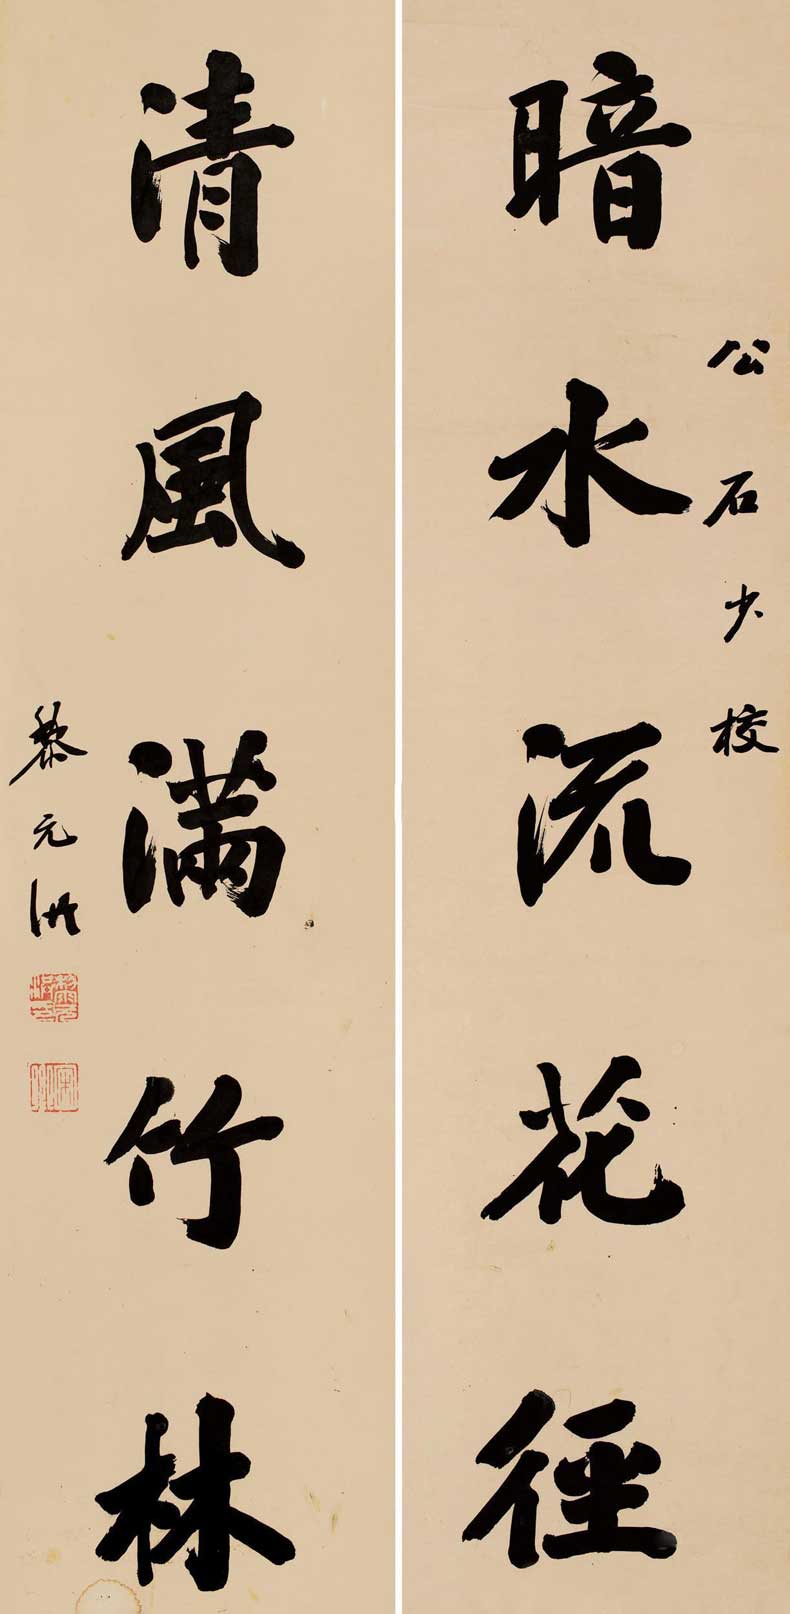 公石少校
暗水流花径
清風滿竹林
黎元洪